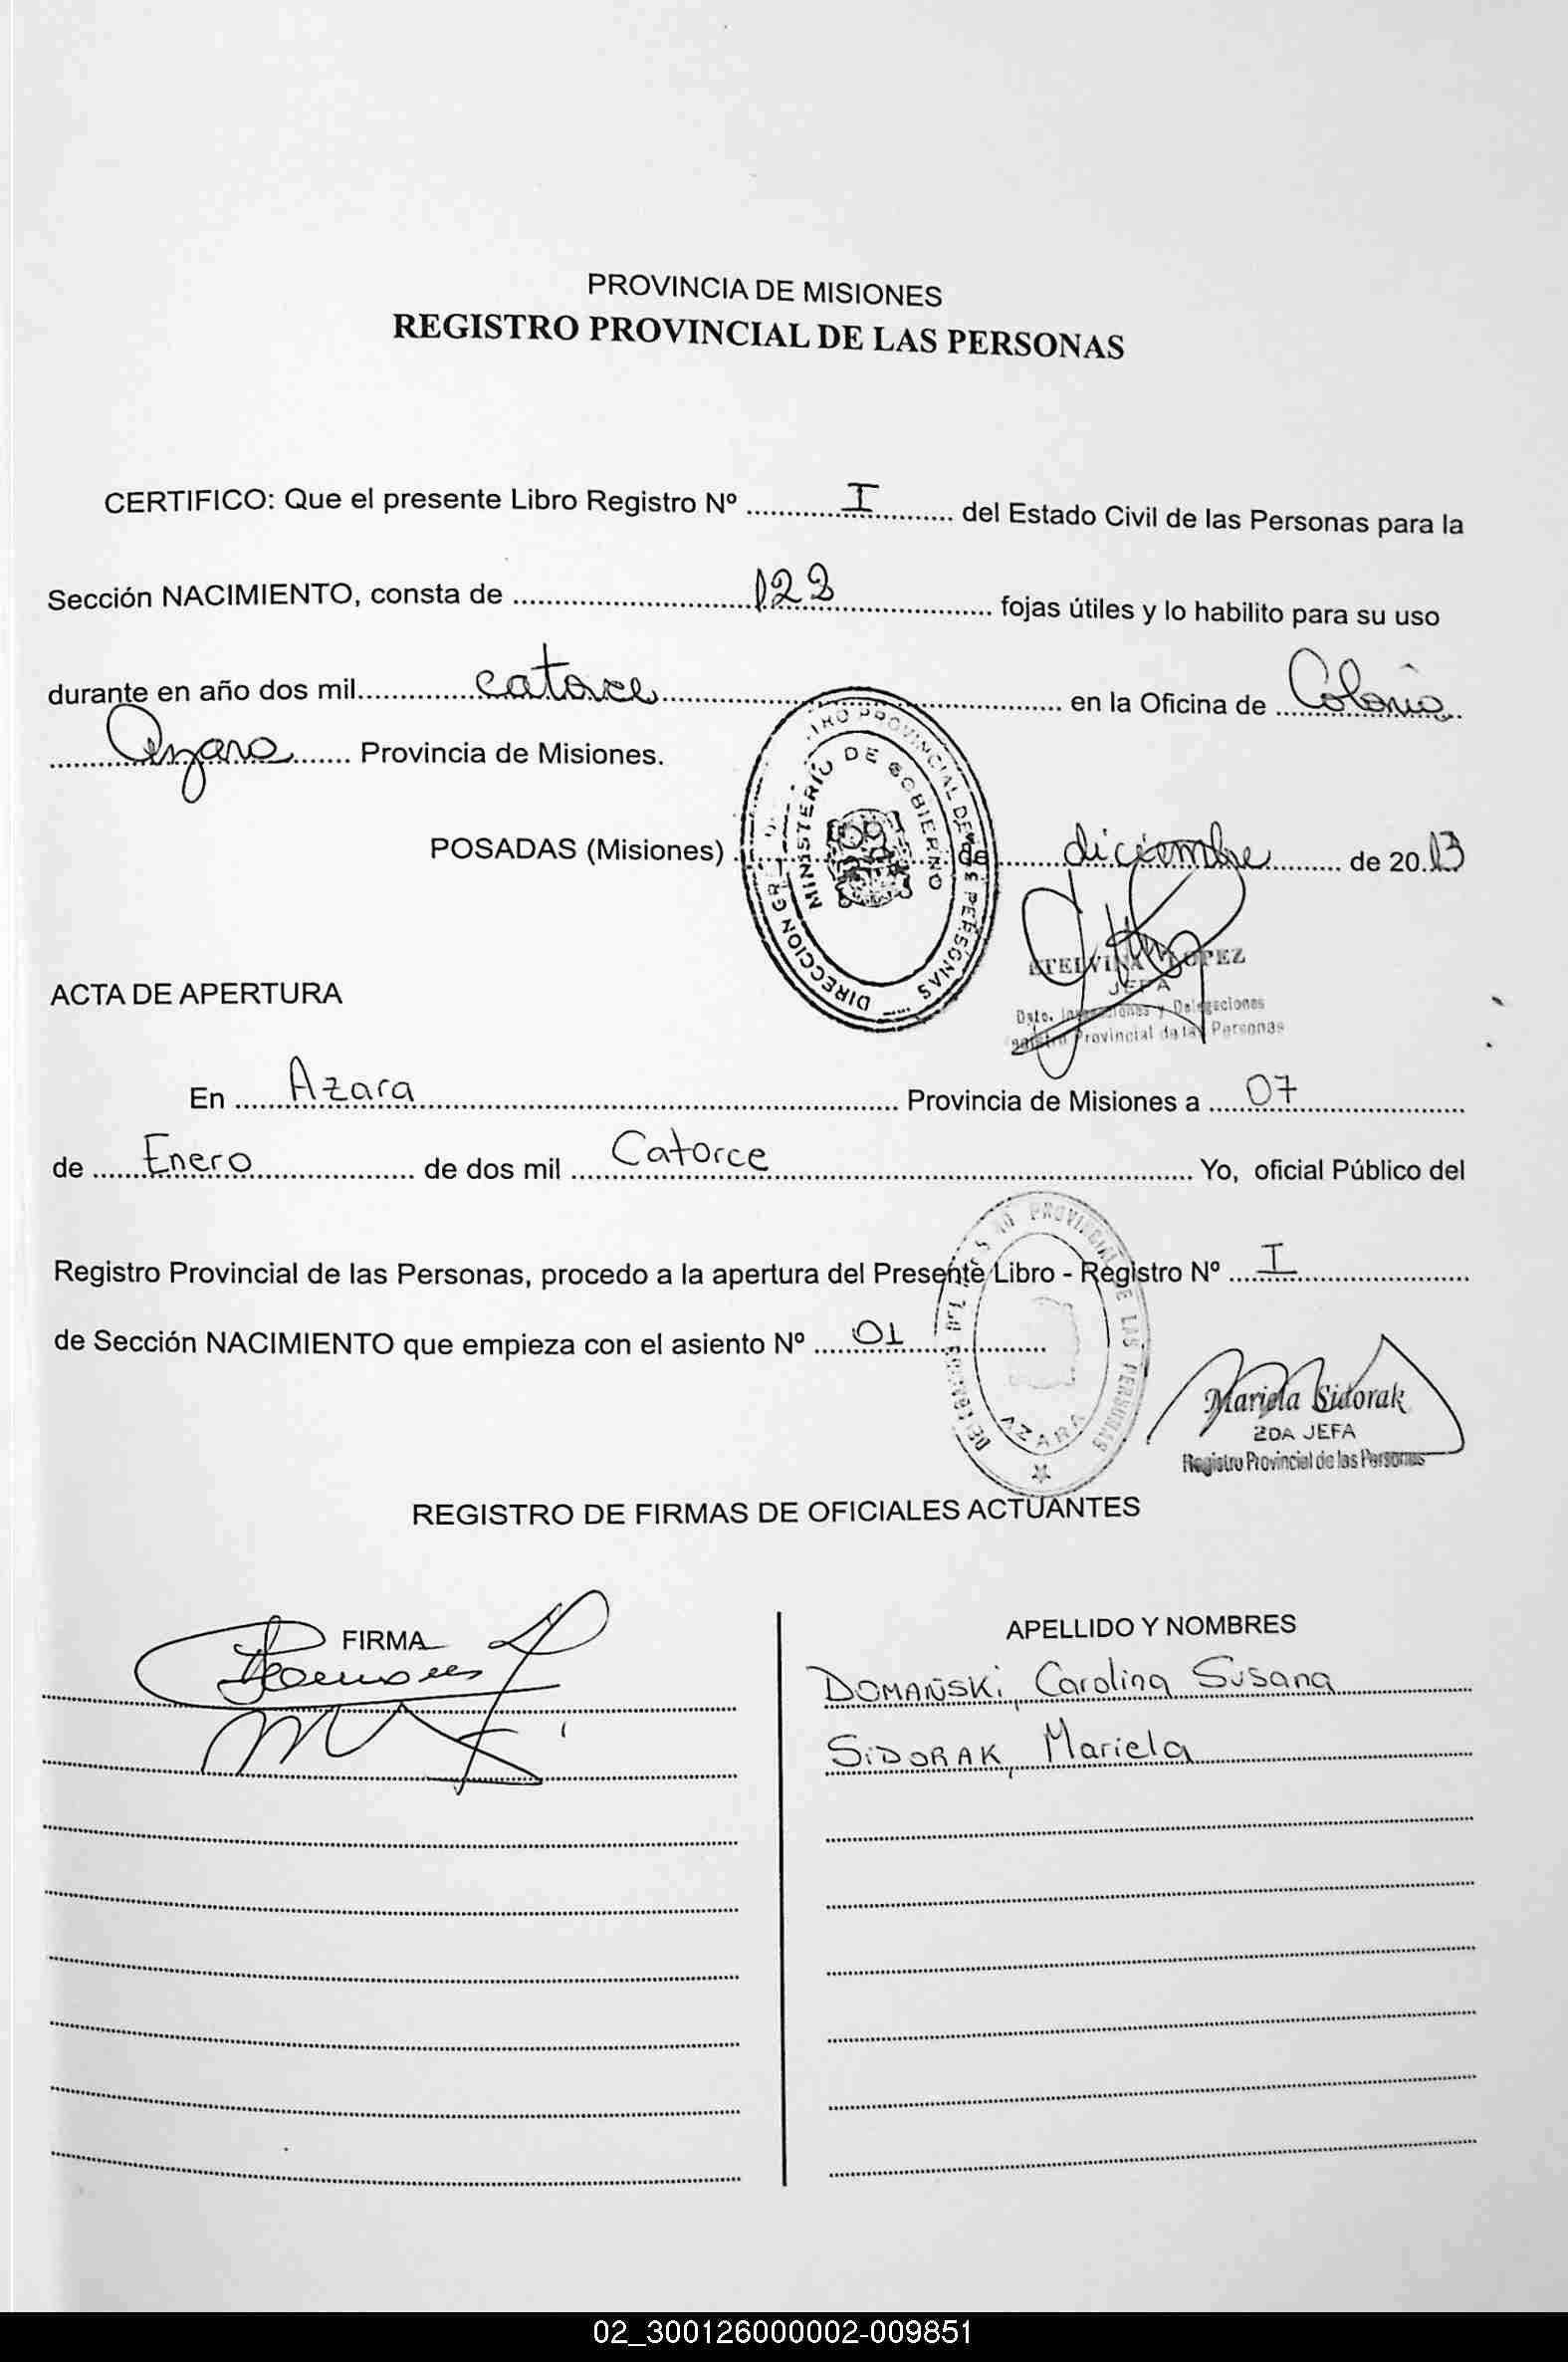 PROVINCIA DE MISIONES
REGISTRO PROVINCIAL DE LAS PERSONAS
CERTIFICO: Que el presente Libro Registro Nº I del Estado Civil de las Personas para la
Sección NACIMIENTO, consta de 122 fojas útiles y lo habilito para su uso
durante en año dos mil catorce en la Oficina de Colonia
Azara Provincia de Misiones.
POSADAS (Misiones) de diciembre de 2013
MINISTERIO DE GOBIERNO
PROVINCIAL DE PERSONAS DIRECCION
ETELVINA LOPEZ
JEFA
Dpto. Inspecciones y Delegaciones
Provincial de las Personas
ACTA DE APERTURA
En Azara Provincia de Misiones a 07
de Enero de dos mil Catorce Yo, oficial Público del
Registro Provincial de las Personas, procedo a la apertura del Presente Libro - Registro Nº I
de Sección NACIMIENTO que empieza con el asiento Nº 01
PROVINCIAL DE LAS PERSONAS
AZARA
Mariela Sidorak
2DA JEFA
Registro Provincial de las Personas
REGISTRO DE FIRMAS DE OFICIALES ACTUANTES
FIRMA
APELLIDO Y NOMBRES
DOMAÑSKi, Carolina Susana
SiDORAK, Mariela
02_300126000002-009851